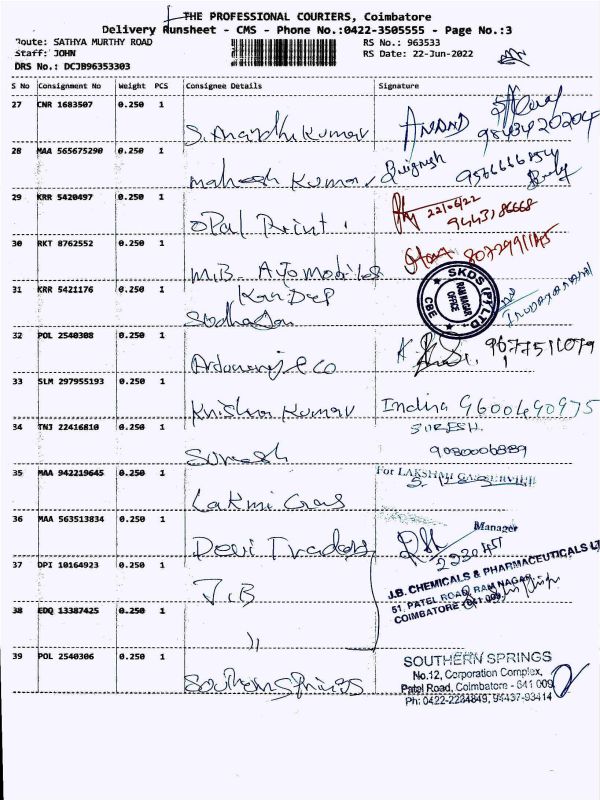 THE PROFESSIONAL COURIERS, Coimbatore
Delivery Runsheet - CMS - Phone No.:0422-3505555 - Page No.:3
Route: SATHYA MURTHY ROAD RS No.: 963533
Staff: JOHN RS Date: 22-Jun-2022
DRS No.: DCJB96353303
S No Consignment No Weight PCS Consignee Details Signature
27 CNR 1683507 0.250 1
ANAND
28 MAA 565675290 0.250 1
Mahesh Kumar
29 KRR 5420497 0.250 1
22/06/22
Opal Print
30 RKT 8762552 0.250 1
M.B. Automobiles
31 KRR 5421176 0.250 1
SKDS (P) LTD
RAM NAGAR
OFFICE
CBE
32 POL 2540308 0.250 1
9677511079
33 SLM 297955193 0.250 1
Krishna Kumar Indira 9600690975
34 TNJ 22416810 0.250 1
SURESH
Suresh 9080006889
35 MAA 942219645 0.250 1
For LAKSHMI GAS SERVICE
Lakmi Gas
36 MAA 563513834 0.250 1
Manager
Devi Traders
37 DPI 10164923 0.250 1
J.B. CHEMICALS & PHARMACEUTICALS LT
J.B
51, PATEL ROAD, RAM NAGAR
COIMBATORE - 641 009
38 EDQ 13387425 0.250 1
39 POL 2540306 0.250 1
SOUTHERN SPRINGS
No.12, Corporation Complex,
Southern Springs
Patel Road, Coimbatore - 641 009
Ph: 0422-2234849, 94437-93414